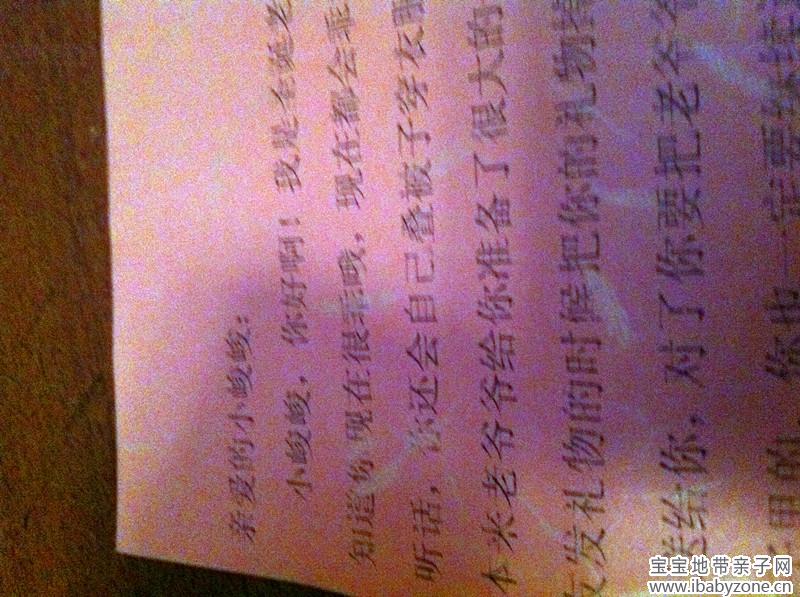 亲爱的小峻峻:
小峻峻,你好啊!我是圣诞老
知道你现在很乖哦,现在都会乖
听话,你还会自己叠被子穿衣服
本来老爷爷给你准备了很大的
友发礼物的时候把你的礼物掉
送给你,对了你要把老爷爷
用的,你也一定要
宝宝地带亲子网
www.ibabyzone.cn